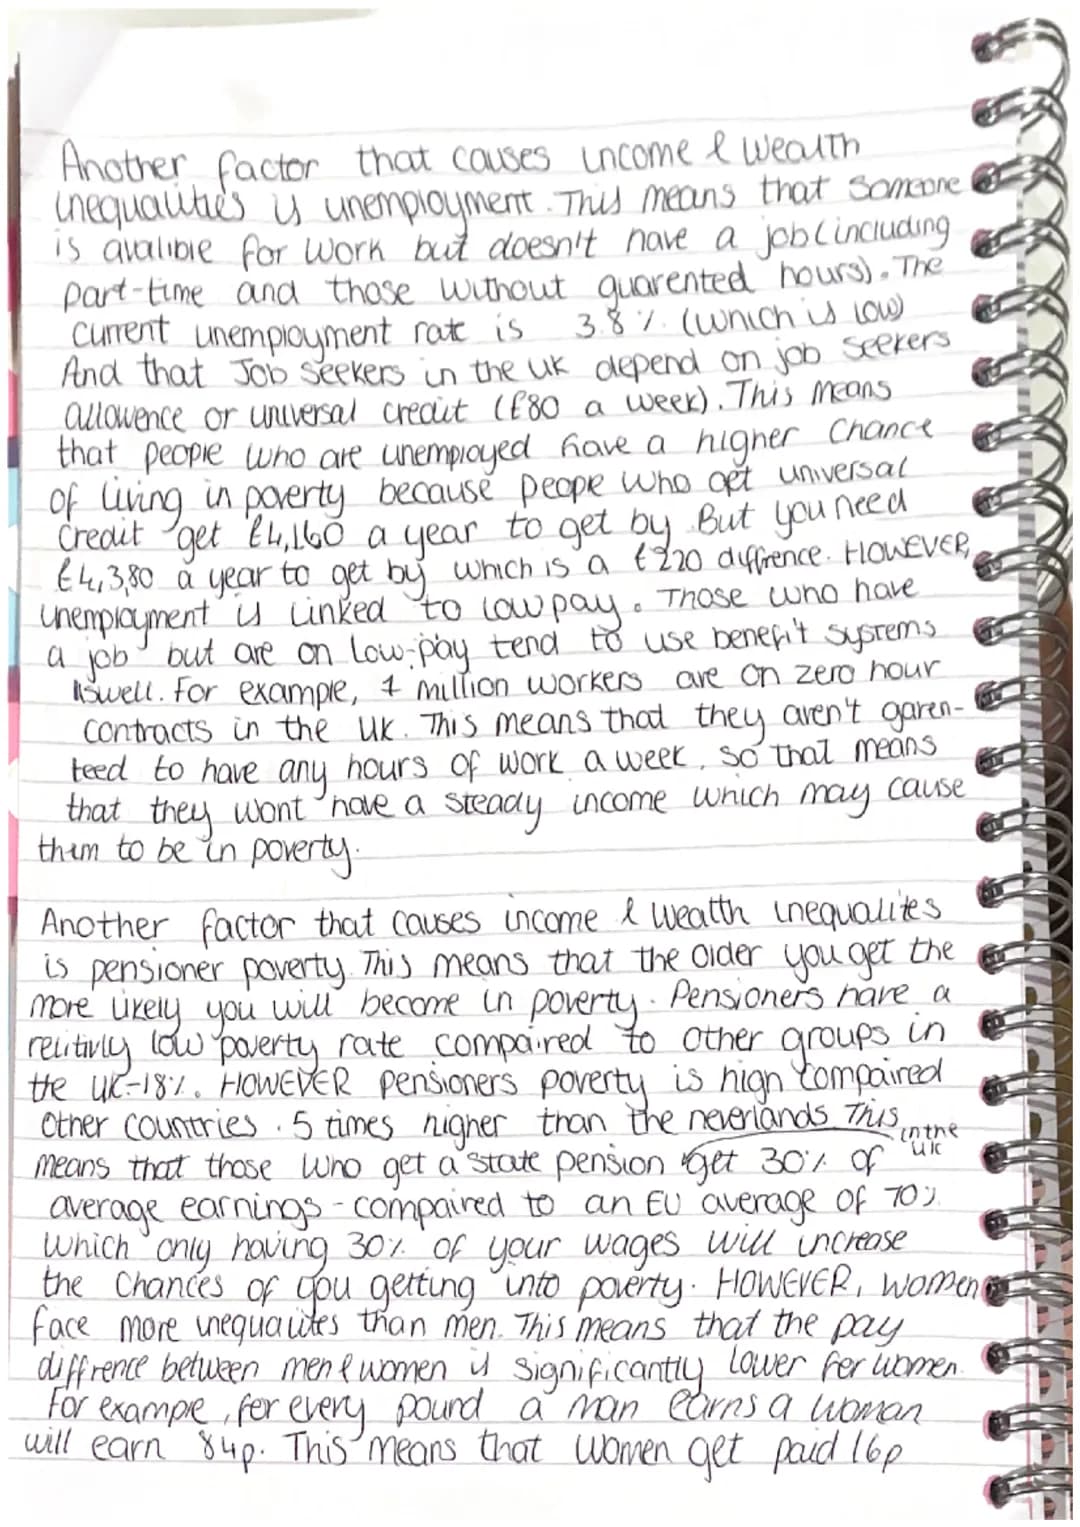 Another factor that causes income & wealth
inequalities is unemployment. This means that someone
is avalible for work but doesn't have a job (including
part-time and those without guarented hours). The
current unemployment rate is 3.8%. (which is low)
And that Job seekers in the UK depend on job seekers
allowence or universal credit (£80 a week). This means
that people who are unemployed have a higher chance
of living in poverty because people who get universal
credit get £4,160 a year to get by. But you need
£4,3,80 a year to get by which is a £220 diffrence. HOWEVER,
unemployment is linked to low pay. Those who have
a job but are on low-pay tend to use benefit systems
aswell. For example, 1 million workers are on zero hour
contracts in the UK. This means that they aren't garen-
teed to have any hours of work a week, so that means
that they wont have a steady income which may cause
them to be in poverty.
Another factor that causes income & wealth inequalites
is pensioner poverty. This means that the older you get the
more likely you will become in poverty. Pensioners have a
relitivly low poverty rate compaired to other groups in
the UK-18%. HOWEVER pensioners poverty is high compaired
other countries. 5 times higher than the neverlands This
means that those who get a state pension in the UK get 30% of
average earnings - compaired to an EU average of 70%.
Which only having 30% of your wages will increase
the chances of you getting into poverty. HOWEVER, women
face more inequalites than men. This means that the pay
diffrence between men & women is significantly lower for women.
For example, for every pound a man earns a woman
will earn 84p. This means that women get paid 16p